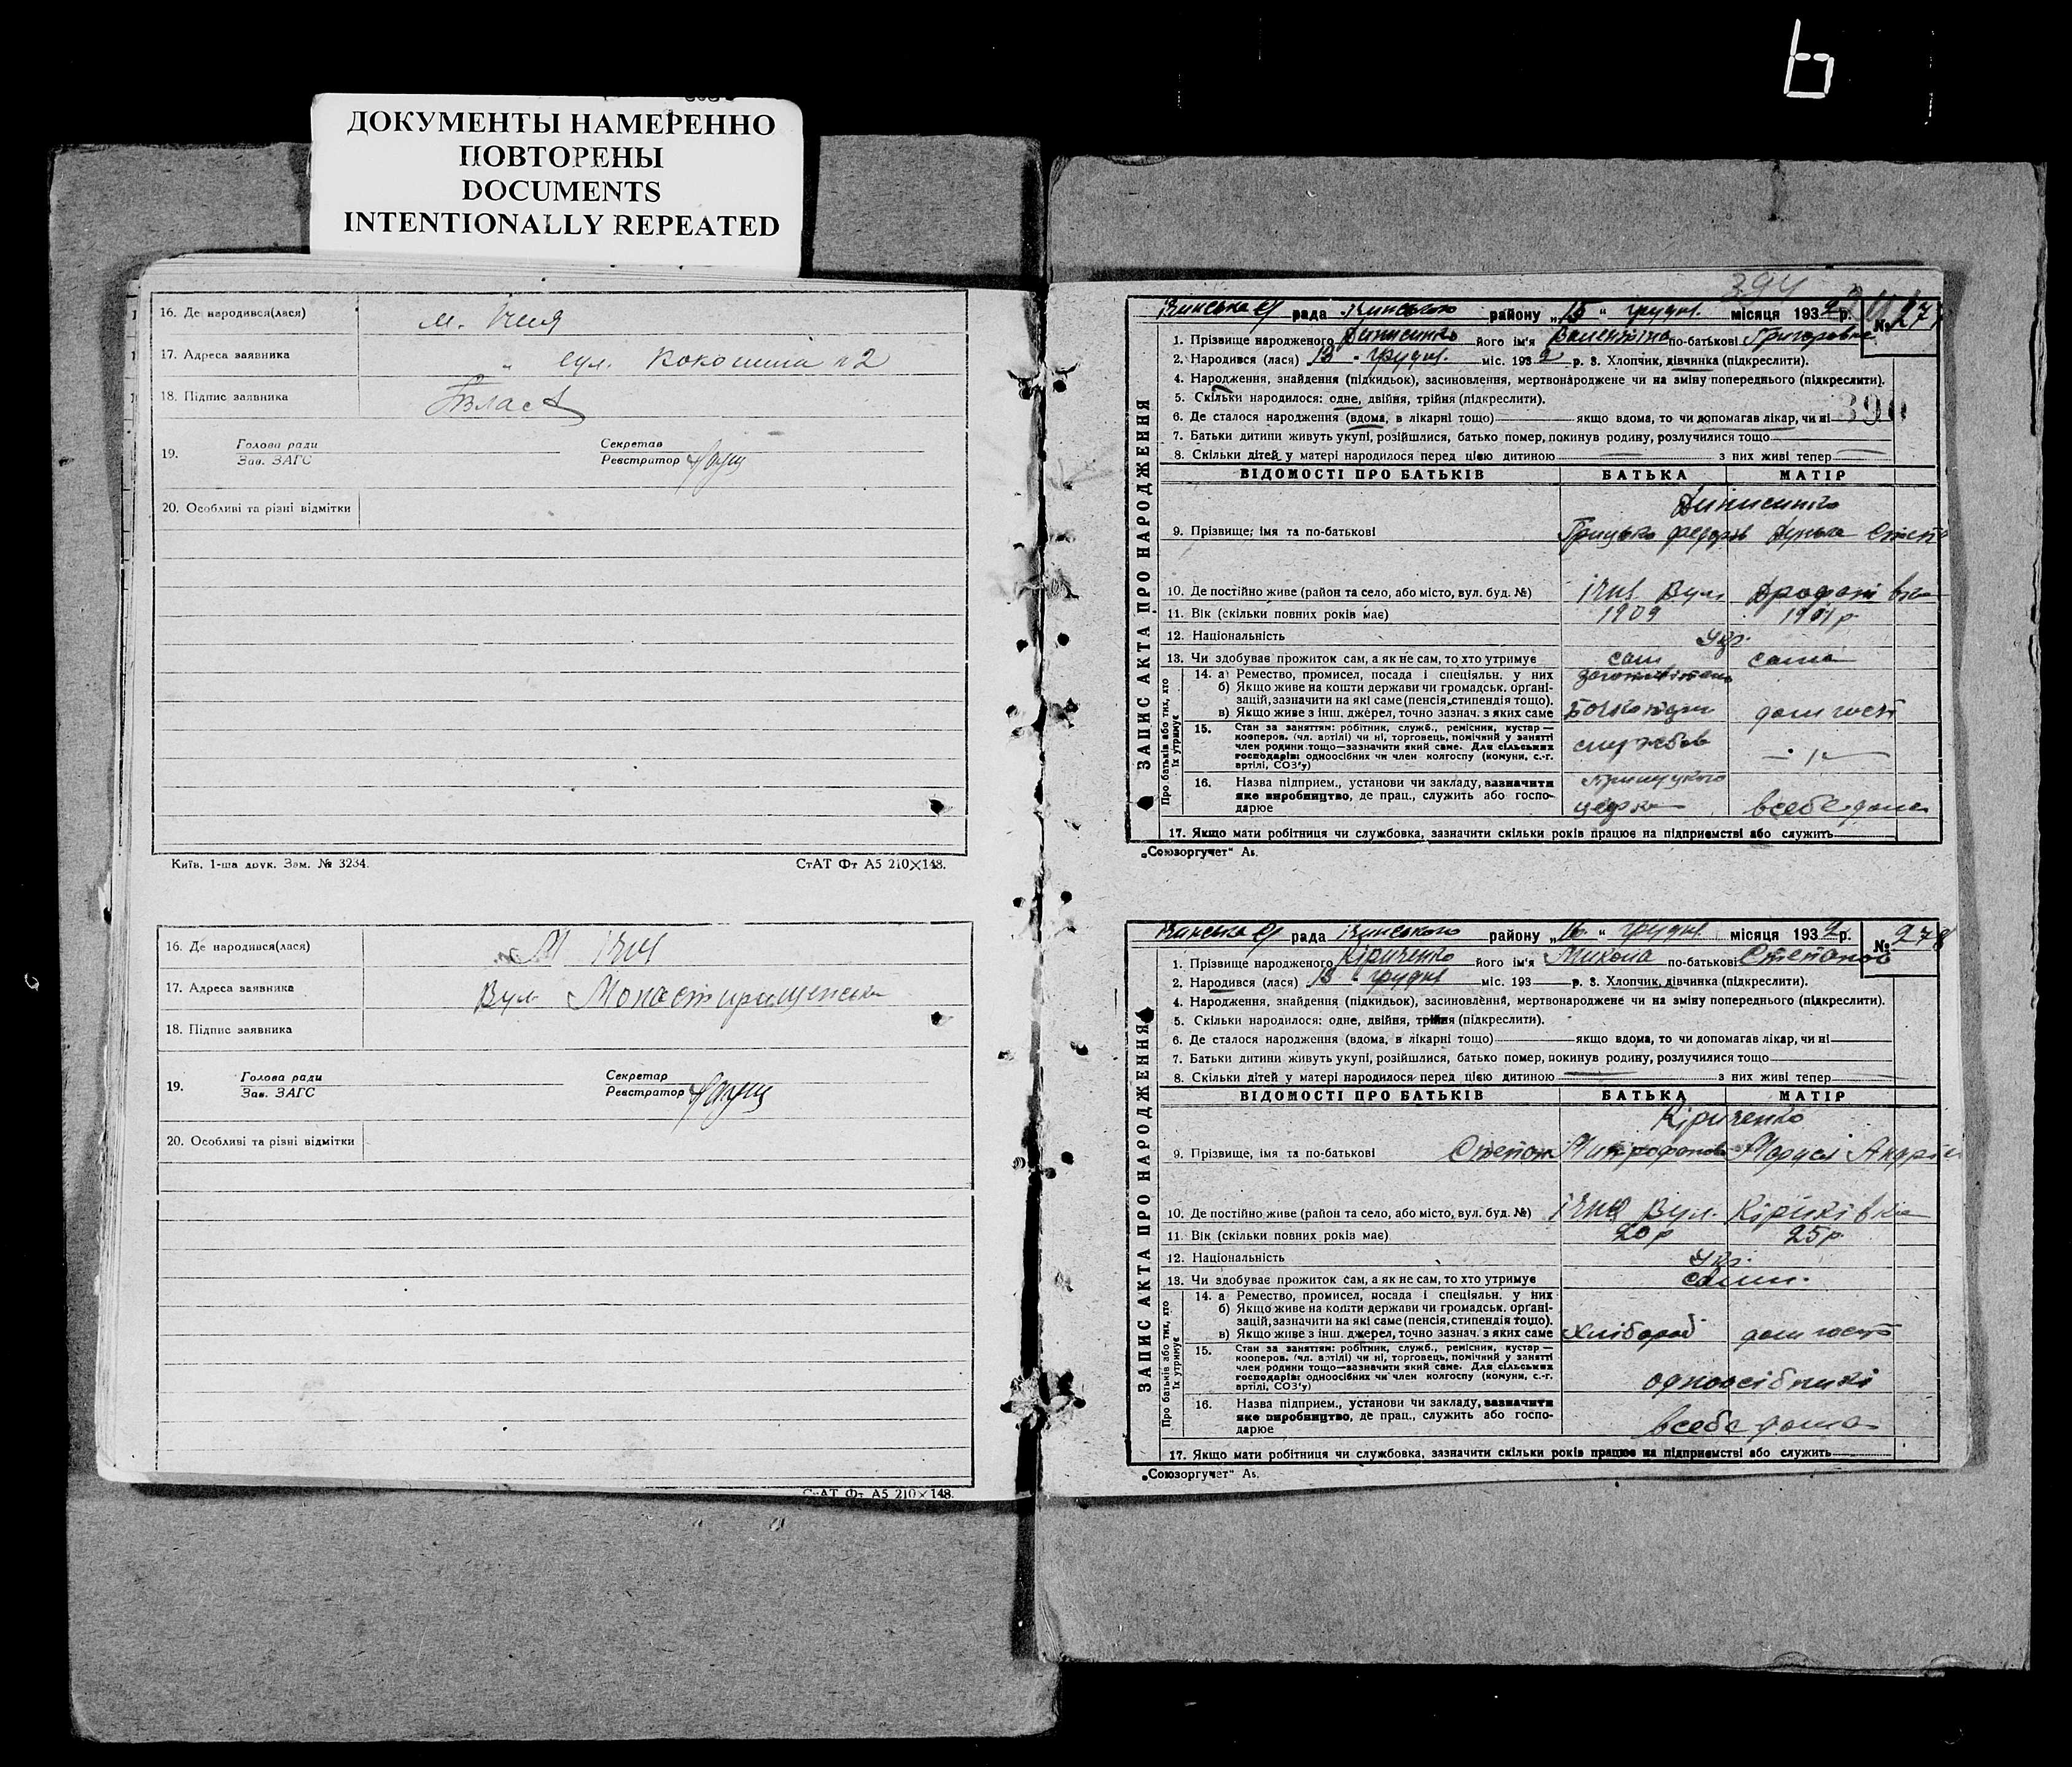 ДОКУМЕНТЫ НАМЕРЕННО
ПОВТОРЕНЫ
DOCUMENTS
INTENTIONALLY REPEATED
16. Де народився(лася) м. Ічня
17. Адреса заявника " вул. №2
18. Підпис заявника
19. Голова ради Зав. ЗАГС Секретар Реєстратор
20. Особливі та різні відмітки
Київ, 1-ша друк. Зам. № 3234. СтАТ Фт А5 210×148.
16. Де народився(лася) М Ічня
17. Адреса заявника Вул. Монастирищенська
18. Підпис заявника
19. Голова ради Зав. ЗАГС Секретар Реєстратор
20. Особливі та різні відмітки
СтАТ Фт А5 210×148.
394
Ічинська рада Ічинського району „15" грудня місяця 1932 р. № 277
1. Прізвище народженого його ім'я Валентина по-батькові Григоровна
2. Народився (лася) 13 " грудня міс. 1932 р. 3. Хлопчик, дівчинка (підкреслити).
4. Народження, знайдення (підкидьок), засиновлення, мертвонароджене чи на зміну попереднього (підкреслити).
5. Скільки народилося: одне, двійня, трійня (підкреслити).
390
6. Де сталося народження (вдома, в лікарні тощо) якщо вдома, то чи допомагав лікар, чи ні
7. Батьки дитини живуть укупі, розійшлися, батько помер, покинув родину, розлучилися тощо
8. Скільки дітей у матері народилося перед цією дитиною — з них живі тепер —
ЗАПИС АКТА ПРО НАРОДЖЕННЯ
ВІДОМОСТІ ПРО БАТЬКІВ БАТЬКА МАТІР
9. Прізвище, імя та по-батькові Грицько Федоров
10. Де постійно живе (район та село, або місто, вул. буд. №) Ічня Вул.
11. Вік (скільки повних років має) 1909 1901 р.
12. Національність Укр.
13. Чи здобуває прожиток сам, а як не сам, то хто утримує сам сама
Про батьків або тих, хто їх утримує
14. а) Ремество, промисел, посада і спеціяльн. у них
б) Якщо живе на кошти держави чи громадськ. організацій, зазначити на які саме (пенсія, стипендія тощо).
в) Якщо живе з інш. джерел, точно зазнач. з яких саме дом госп
15. Стан за заняттям: робітник, служб., ремісник, кустар—
кооперов. (чл. артілі) чи ні, торговець, помічний у занятті
член родини тощо—зазначити який саме. Для сільських
господарів: одноосібних чи член колгоспу (комуни, с.-г.
артілі, СОЗ'у) службов
16. Назва підприєм., установи чи закладу, зазначити
яке виробництво, де прац., служить або госпо-
дарюе всебе дома
17. Якщо мати робітниця чи службовка, зазначити скільки років працює на підприємстві або служить
„Союзоргучет" А5.
Ічинська рада Ічинського району „16" грудня місяця 1932 р. № 278
1. Прізвище народженого Кіриченко його ім'я Микола по-батькові Степанов
2. Народився (лася) 13 " грудня міс. 193 р. 3. Хлопчик, дівчинка (підкреслити).
4. Народження, знайдення (підкидьок), засиновлення, мертвонароджене чи на зміну попереднього (підкреслити).
5. Скільки народилося: одне, двійня, трійня (підкреслити).
6. Де сталося народження (вдома, в лікарні тощо) якщо вдома, то чи допомагав лікар, чи ні
7. Батьки дитини живуть укупі, розійшлися, батько помер, покинув родину, розлучилися тощо
8. Скільки дітей у матері народилося перед цією дитиною — з них живі тепер —
ЗАПИС АКТА ПРО НАРОДЖЕННЯ
ВІДОМОСТІ ПРО БАТЬКІВ БАТЬКА МАТІР
Кіриченко
9. Прізвище, імя та по-батькові Степан Митрофанов Маруся
10. Де постійно живе (район та село, або місто, вул. буд. №) Ічня Вул. Кіриківка
11. Вік (скільки повних років має) 20 р 25 р
12. Національність Укр.
13. Чи здобуває прожиток сам, а як не сам, то хто утримує сами.
Про батьків або тих, хто їх утримує
14. а Ремество, промисел, посада і спеціяльн. у них
б) Якщо живе на кошти держави чи громадськ. організацій, зазначити на які саме (пенсія, стипендія тощо).
в) Якщо живе з інш. джерел, точно зазнач. з яких саме хлібороб дом госп
15. Стан за заняттям: робітник, служб., ремісник, кустар—
кооперов. (чл. артілі) чи ні, торговець, помічний у занятті
член родини тощо—зазначити який саме. Для сільських
господарів: одноосібних чи член колгоспу (комуни, с.-г.
артілі, СОЗ'у) одноосібники
16. Назва підприєм., установи чи закладу, зазначити
яке виробництво, де прац., служить або госпо-
дарюе всебе дома
17. Якщо мати робітниця чи службовка, зазначити скільки років працює на підприємстві або служить
„Союзоргучет" А5.